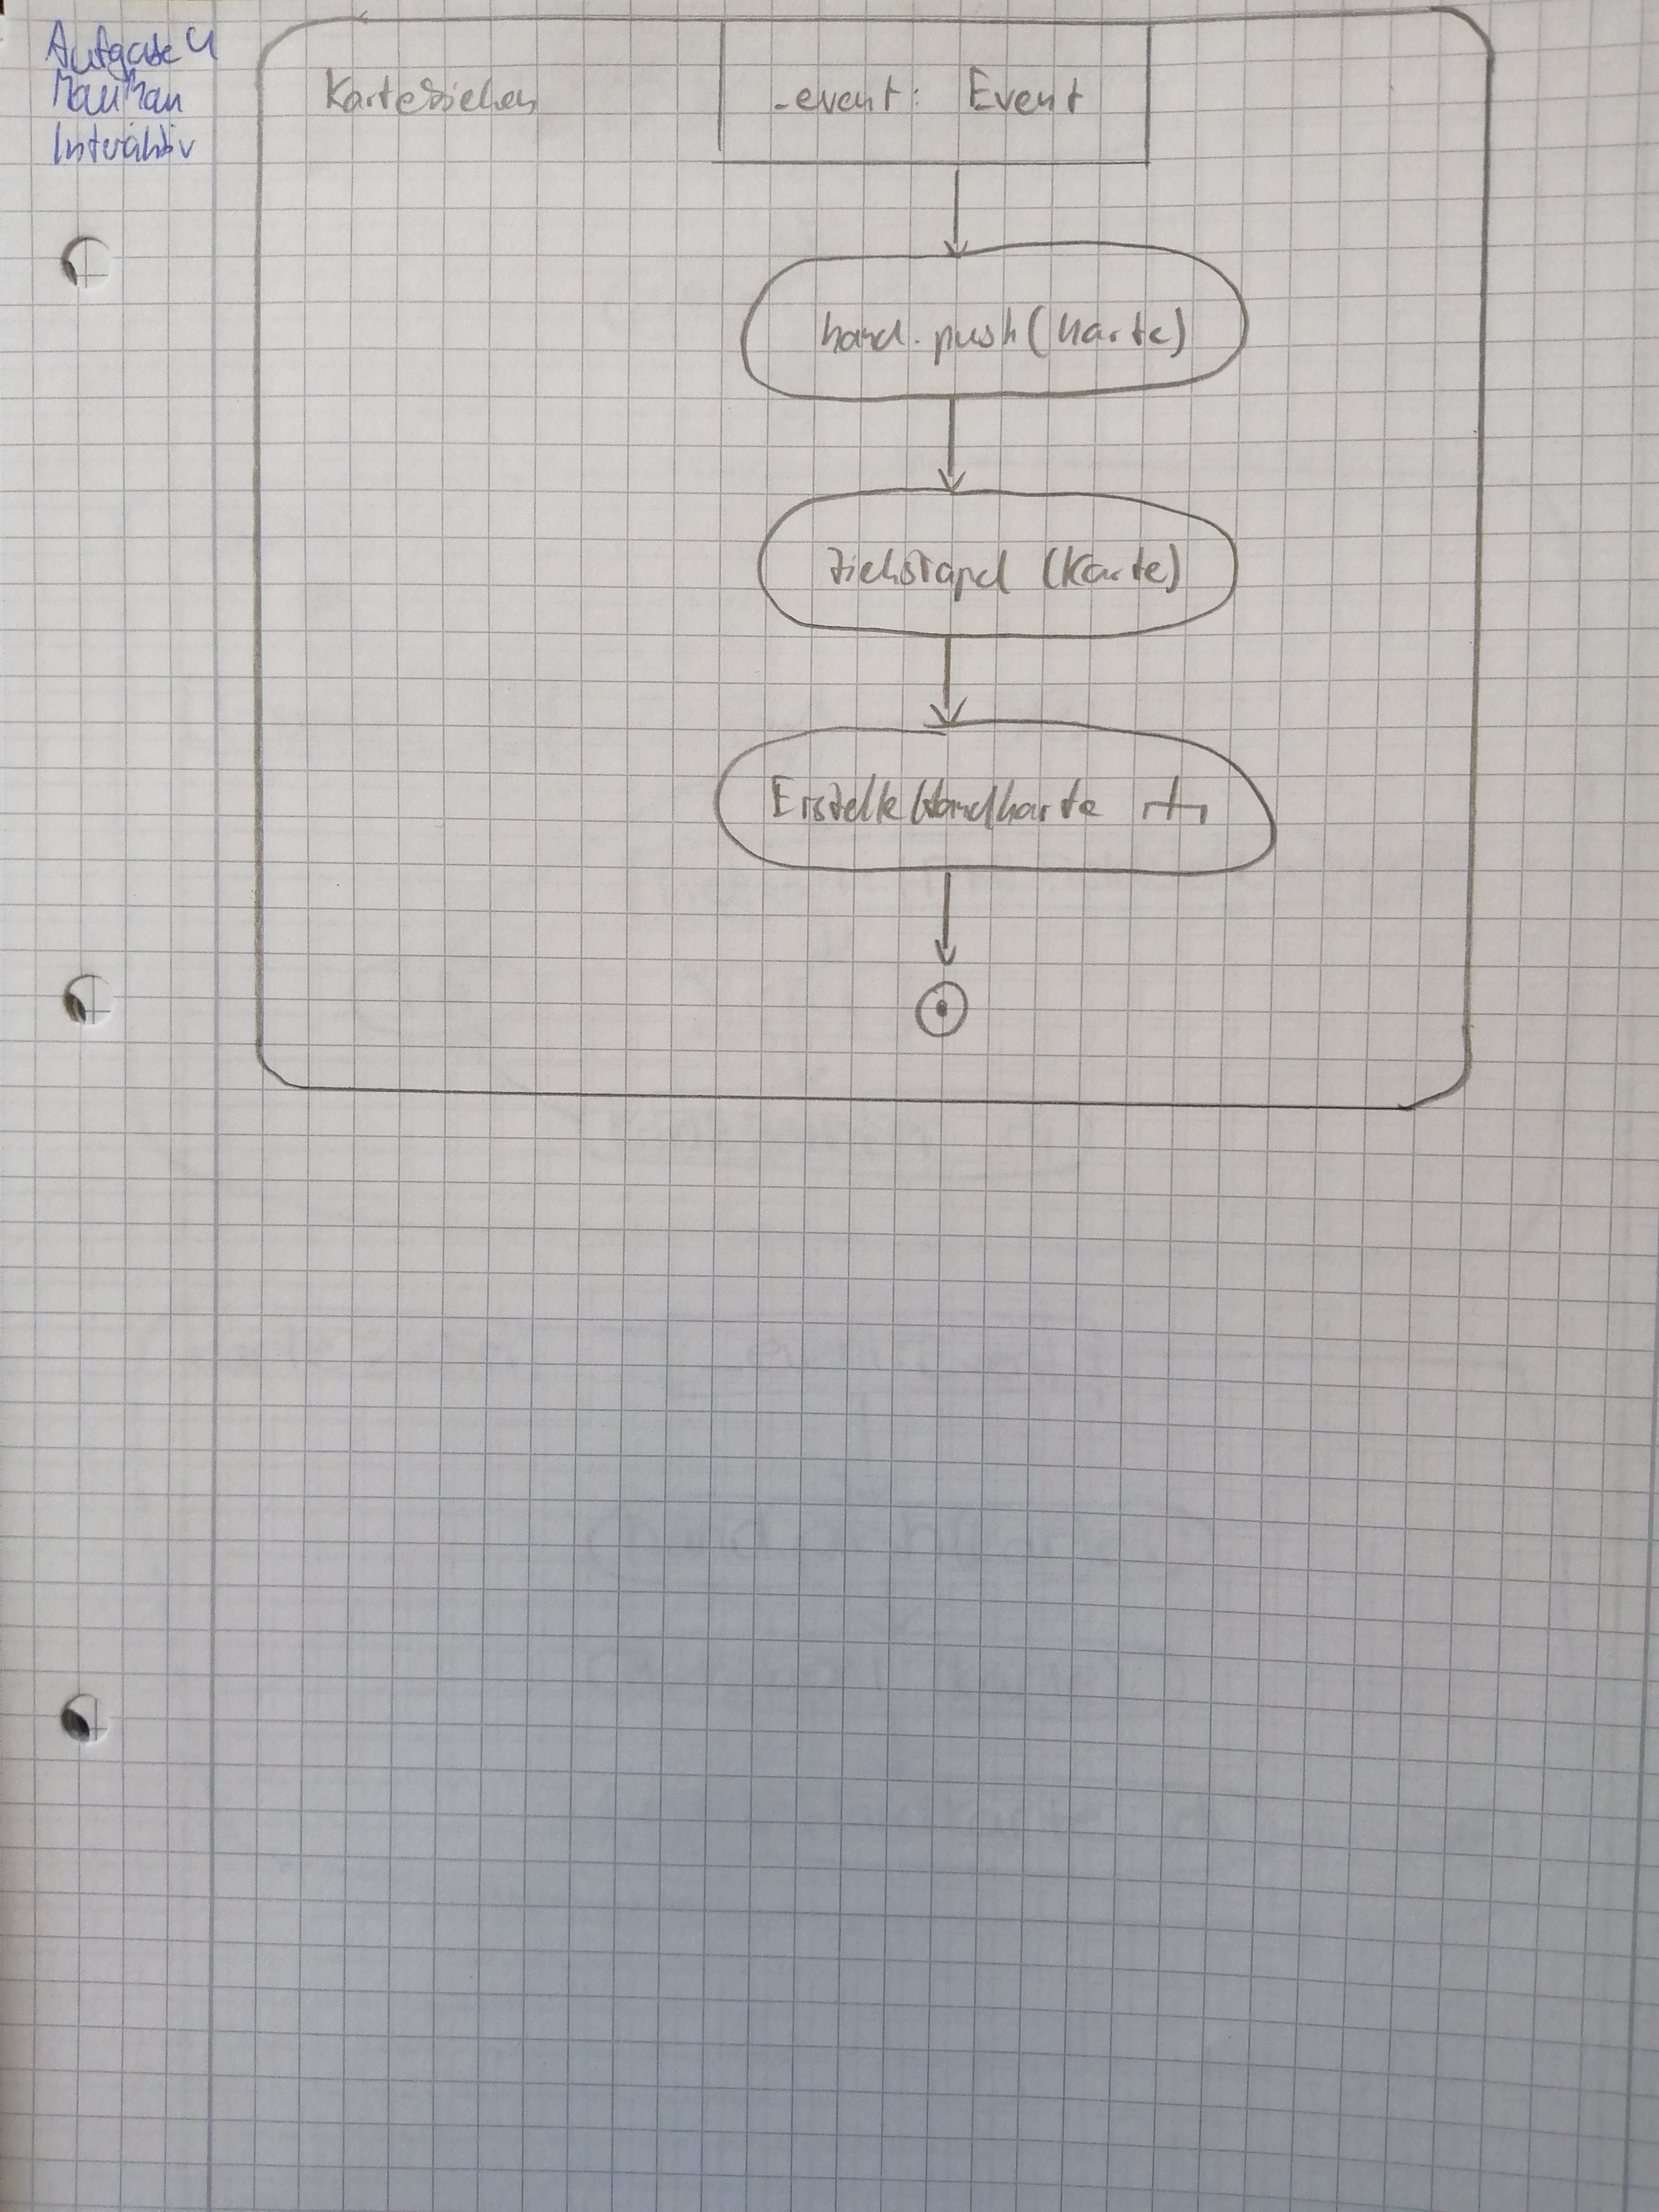 Aufgabe 4
MauMau
Interaktiv
KarteZiehen
_event: Event
hand.push(Karte)
Ziehstapel (Karte)
ErstelleHandkarte